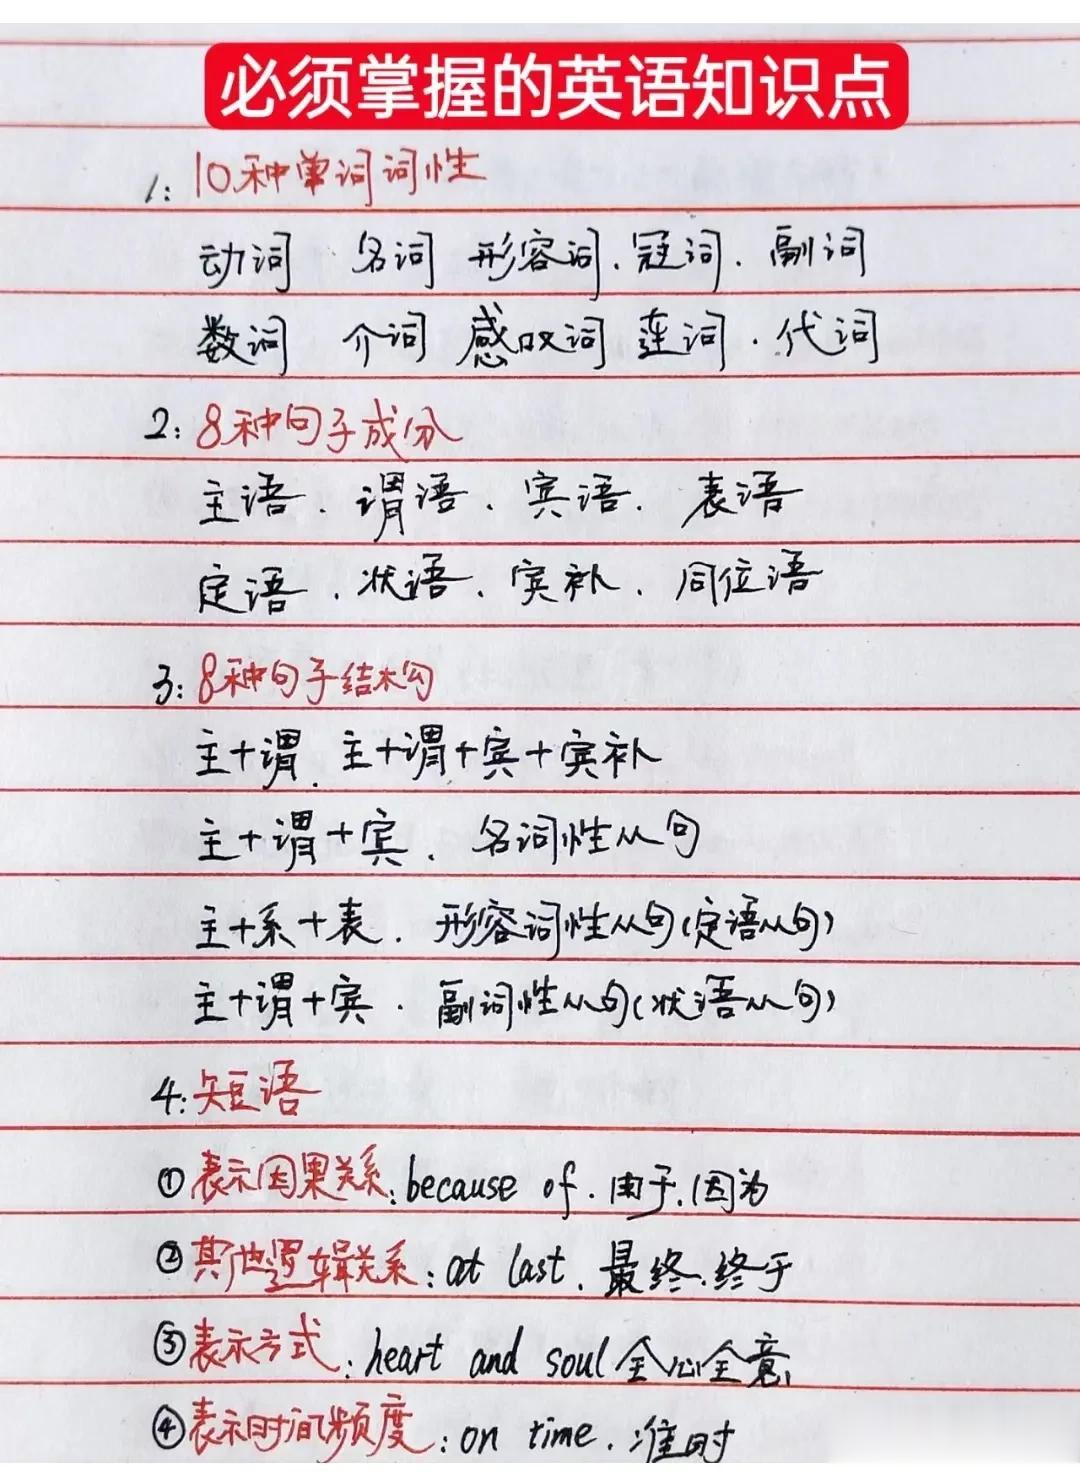 必须掌握的英语知识点
1: 10种单词词性
动词 名词 形容词、冠词、副词
数词 介词 感叹词 连词、代词
2: 8种句子成分
主语、谓语、宾语、表语
定语、状语、宾补、同位语
3: 8种句子结构
主+谓、主+谓+宾+宾补
主+谓+宾、名词性从句
主+系+表、形容词性从句(定语从句)
主+谓+宾、副词性从句(状语从句)
4: 短语
①表示因果关系: because of、由于、因为
②其他逻辑关系: at last、最终、终于
③表示方式: heart and soul 全心全意
④表示时间频度: on time、准时